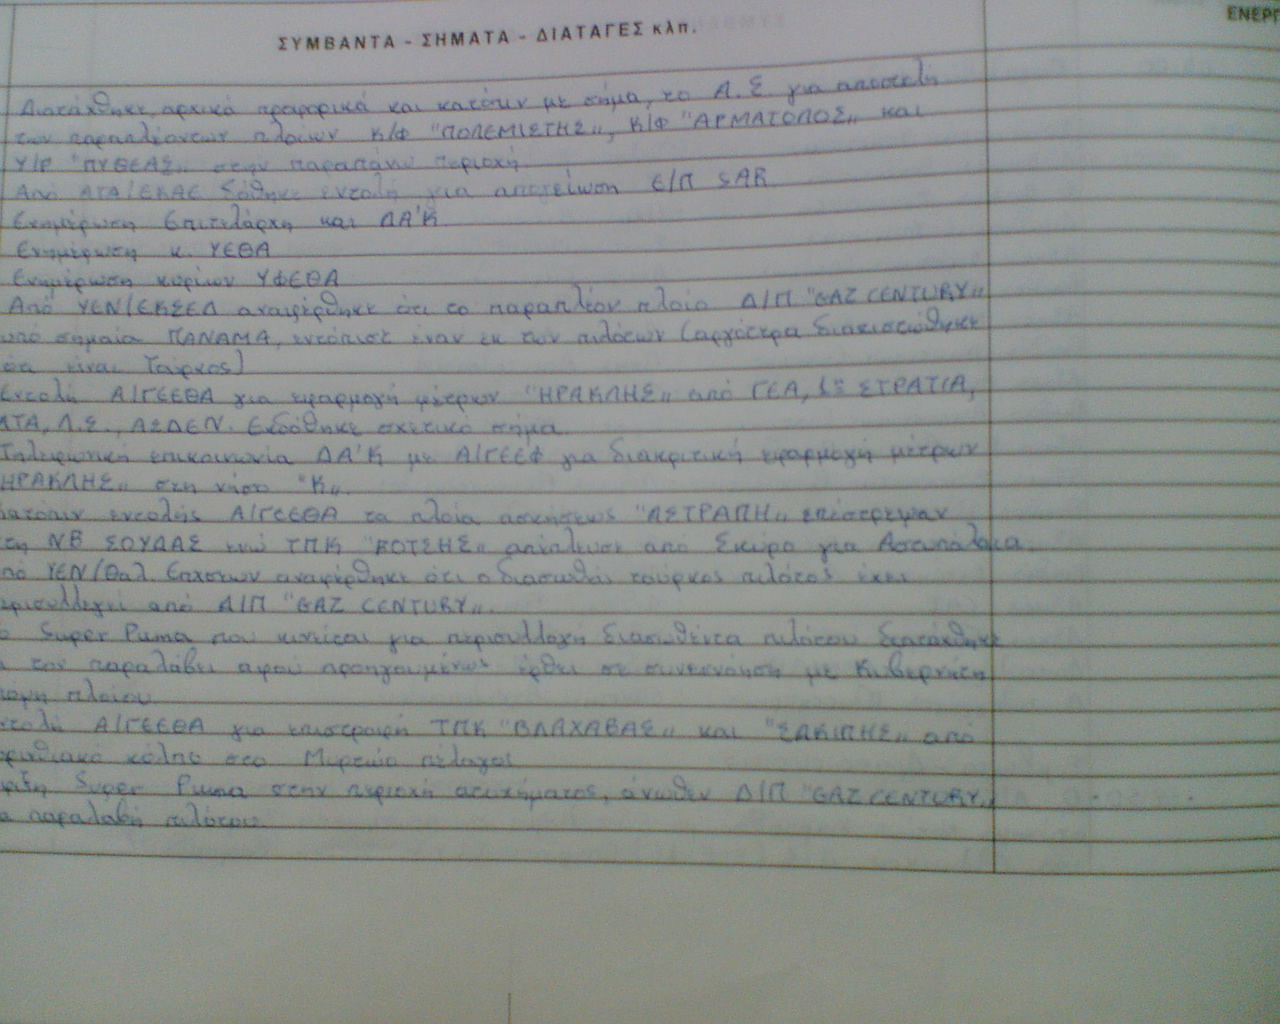 ΣΥΜΒΑΝΤΑ - ΣΗΜΑΤΑ - ΔΙΑΤΑΓΕΣ κλπ.
ΕΝΕΡΓ
Διατάχθηκε, αρχικά προφορικά και κατόπιν με σήμα, το Λ.Σ. για αποστολή
των παραπλεόντων πλοίων Κ/Φ "ΠΟΛΕΜΙΣΤΗΣ", Κ/Φ "ΑΡΜΑΤΟΛΟΣ" και
Υ/Γ "ΠΥΘΕΑΣ" στην παραπάνω περιοχή
Από ΑΤΑ/ΕΚΑΕ δόθηκε εντολή για απογείωση Ε/Π SAR
Ενημέρωση Επιτελάρχη και ΔΑ'Κ
Ενημέρωση κ. ΥΕΘΑ
Ενημέρωση κυρίου ΥΦΕΘΑ
Από ΥΕΝ/ΕΚΣΕΔ αναφέρθηκε ότι το παραπλέον πλοίο Δ/Π "GAZ CENTURY"
υπό σημαία ΠΑΝΑΜΑ, εντόπισε έναν εκ των πιλότων (αργότερα διαπιστώθηκε
ότι είναι Τούρκος)
Εντολή Α/ΓΕΕΘΑ για εφαρμογή μέτρων "ΗΡΑΚΛΗΣ" από ΓΕΑ, 1η ΣΤΡΑΤΙΑ,
ΑΤΑ, Λ.Σ., ΑΣΔΕΝ. Εκδόθηκε σχετικό σήμα
Τηλεφωνική επικοινωνία ΔΑ'Κ με Α/ΓΕΕΦ για διακριτική εφαρμογή μέτρων
ΗΡΑΚΛΗΣ" στη νήσο "Κ".
κατόπιν εντολής Α/ΓΕΕΘΑ τα πλοία ασκήσεως "ΑΣΤΡΑΠΗ" επέστρεψαν
στη ΝΒ ΣΟΥΔΑΣ ενώ ΤΠΚ "ΒΟΤΣΗΣ" απέπλευσε από Σκύρο για Αστυπάλαια
πό ΥΕΝ/Θαλ. Επιχ/σεων αναφέρθηκε ότι ο διασωθείς τούρκος πιλότος έχει
ερισυλλεγεί από Δ/Π "GAZ CENTURY".
ο Super Puma που κινείται για περισυλλογή διασωθέντα πιλότου διατάχθηκε
α τον παραλάβει αφού προηγουμένως έρθει σε συνεννόηση με Κυβερνήτη
πλοίου
ντολή Α/ΓΕΕΘΑ για επιστροφή ΤΠΚ "ΒΛΑΧΑΒΑΣ" και "ΞΑΚΙΠΗΣ" από
ορινθιακό κόλπο στο Μυρτώο πέλαγος
φιξη Super Puma στην περιοχή ατυχήματος, άνωθεν Δ/Π "GAZ CENTURY"
α παραλαβή πιλότου